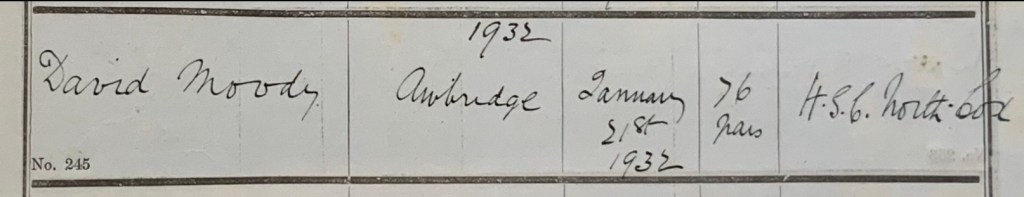 1932
David Moody Awbridge January 21st 1932 76 years H.S.C. North-Cox
No. 245